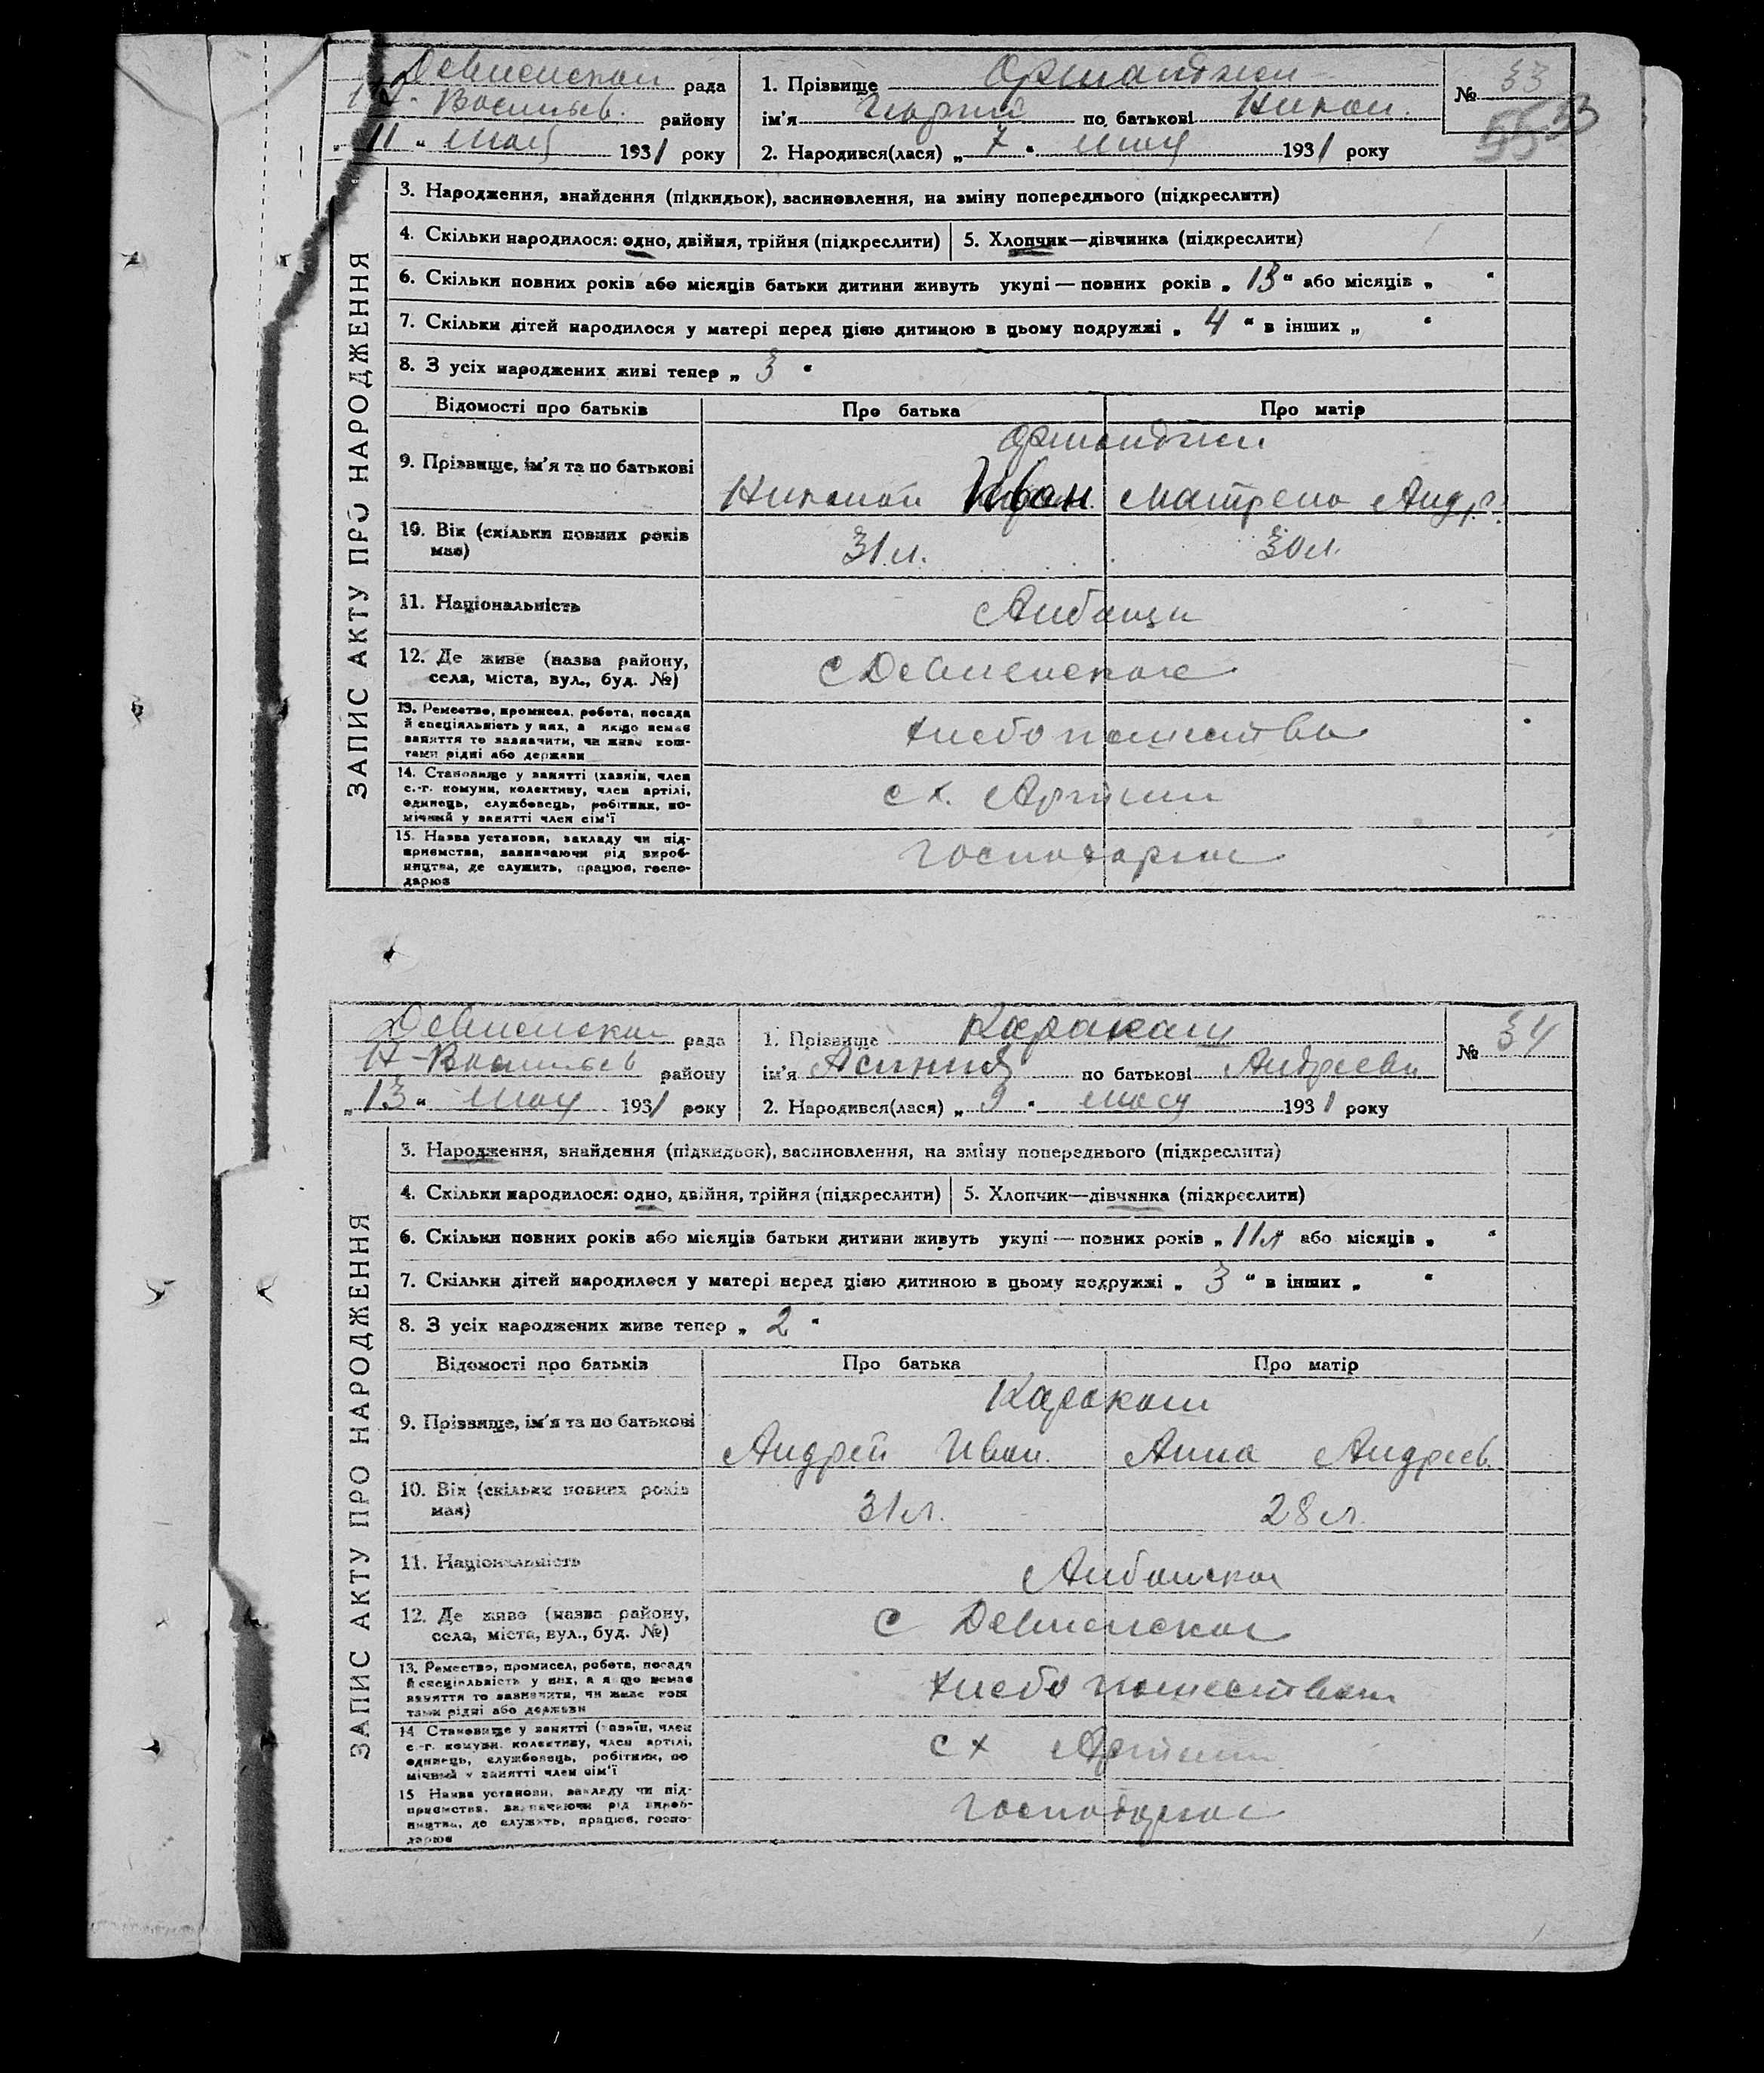 Девненская рада
Н-Васильев. району
„11“ мая 1931 року
1. Прізвище Орманджи
ім'я по батькові Никол.
2. Народився(лася) „7“ мая 1931 року
№ 33
55 33
ЗАПИС АКТУ ПРО НАРОДЖЕННЯ
3. Народження, знайдення (підкидьок), засиновлення, на зміну попереднього (підкреслити)
4. Скільки народилося: одно, двійня, трійня (підкреслити) 5. Хлопчик—дівчинка (підкреслити)
6. Скільки повних років або місяців батьки дитини живуть укупі — повних років „13“ або місяців „ “
7. Скільки дітей народилося у матері перед цією дитиною в цьому подружжі „4“ в інших „ “
8. З усіх народжених живі тепер „3“
Відомості про батьків Про батька Про матір
Орманджи
9. Прізвище, ім'я та по батькові Николай Иван. Матрена Андр.
10. Вік (скільки повних років має) 31 л. 30 л.
11. Національність Албанци
12. Де живе (назва району, села, міста, вул., буд. №) с Девненское
13. Ремество, промисел, робота, посада
й спеціяльність у них, а якщо немає
заняття то зазначити, чи живе кош-
тами рідні або держави
Хлебопашество
14. Становище у занятті (хазяїн, член
с.-г. комуни, колективу, член артілі,
одинець, службовець, робітник, по-
мічний у занятті член сім'ї
с х. Артели
15. Назва установи, закладу чи під-
приємства, зазначаючи рід вироб-
ництва, де служить, працює, госпо-
дарює
Господарює
Девненская рада
Н-Васильев району
„13“ мая 1931 року
1. Прізвище Каракаш
ім'я по батькові Андреевн
2. Народився(лася) „9“ мая 1931 року
№ 34
ЗАПИС АКТУ ПРО НАРОДЖЕННЯ
3. Народження, знайдення (підкидьок), засиновлення, на зміну попереднього (підкреслити)
4. Скільки народилося: одно, двійня, трійня (підкреслити) 5. Хлопчик—дівчинка (підкреслити)
6. Скільки повних років або місяців батьки дитини живуть укупі — повних років „11 л або місяців „ “
7. Скільки дітей народилося у матері перед цією дитиною в цьому подружжі „3“ в інших „ “
8. З усіх народжених живе тепер „2“
Відомості про батьків Про батька Про матір
Каракаш
9. Прізвище, ім'я та по батькові Андрей Иван. Анна Андреев.
10. Вік (скільки повних років має) 31 л. 28 л.
11. Національність Албанская
12. Де живе (назва району, села, міста, вул., буд. №) с Девненское
13. Ремество, промисел, робота, посада
й спеціяльність у них, а якщо немає
заняття то зазначити, чи живе кош
тами рідні або держави
Хлебопашеством
14 Становище у занятті (хазяїн, член
с.-г. комуни, колективу, член артілі,
одинець, службовець, робітник, по
мічний у занятті член сім'ї
с х Артели
15 Назва установи, закладу чи під-
приємства, зазначаючи рід вироб-
ництва, де служить, працює, госпо-
дарює
Господарює